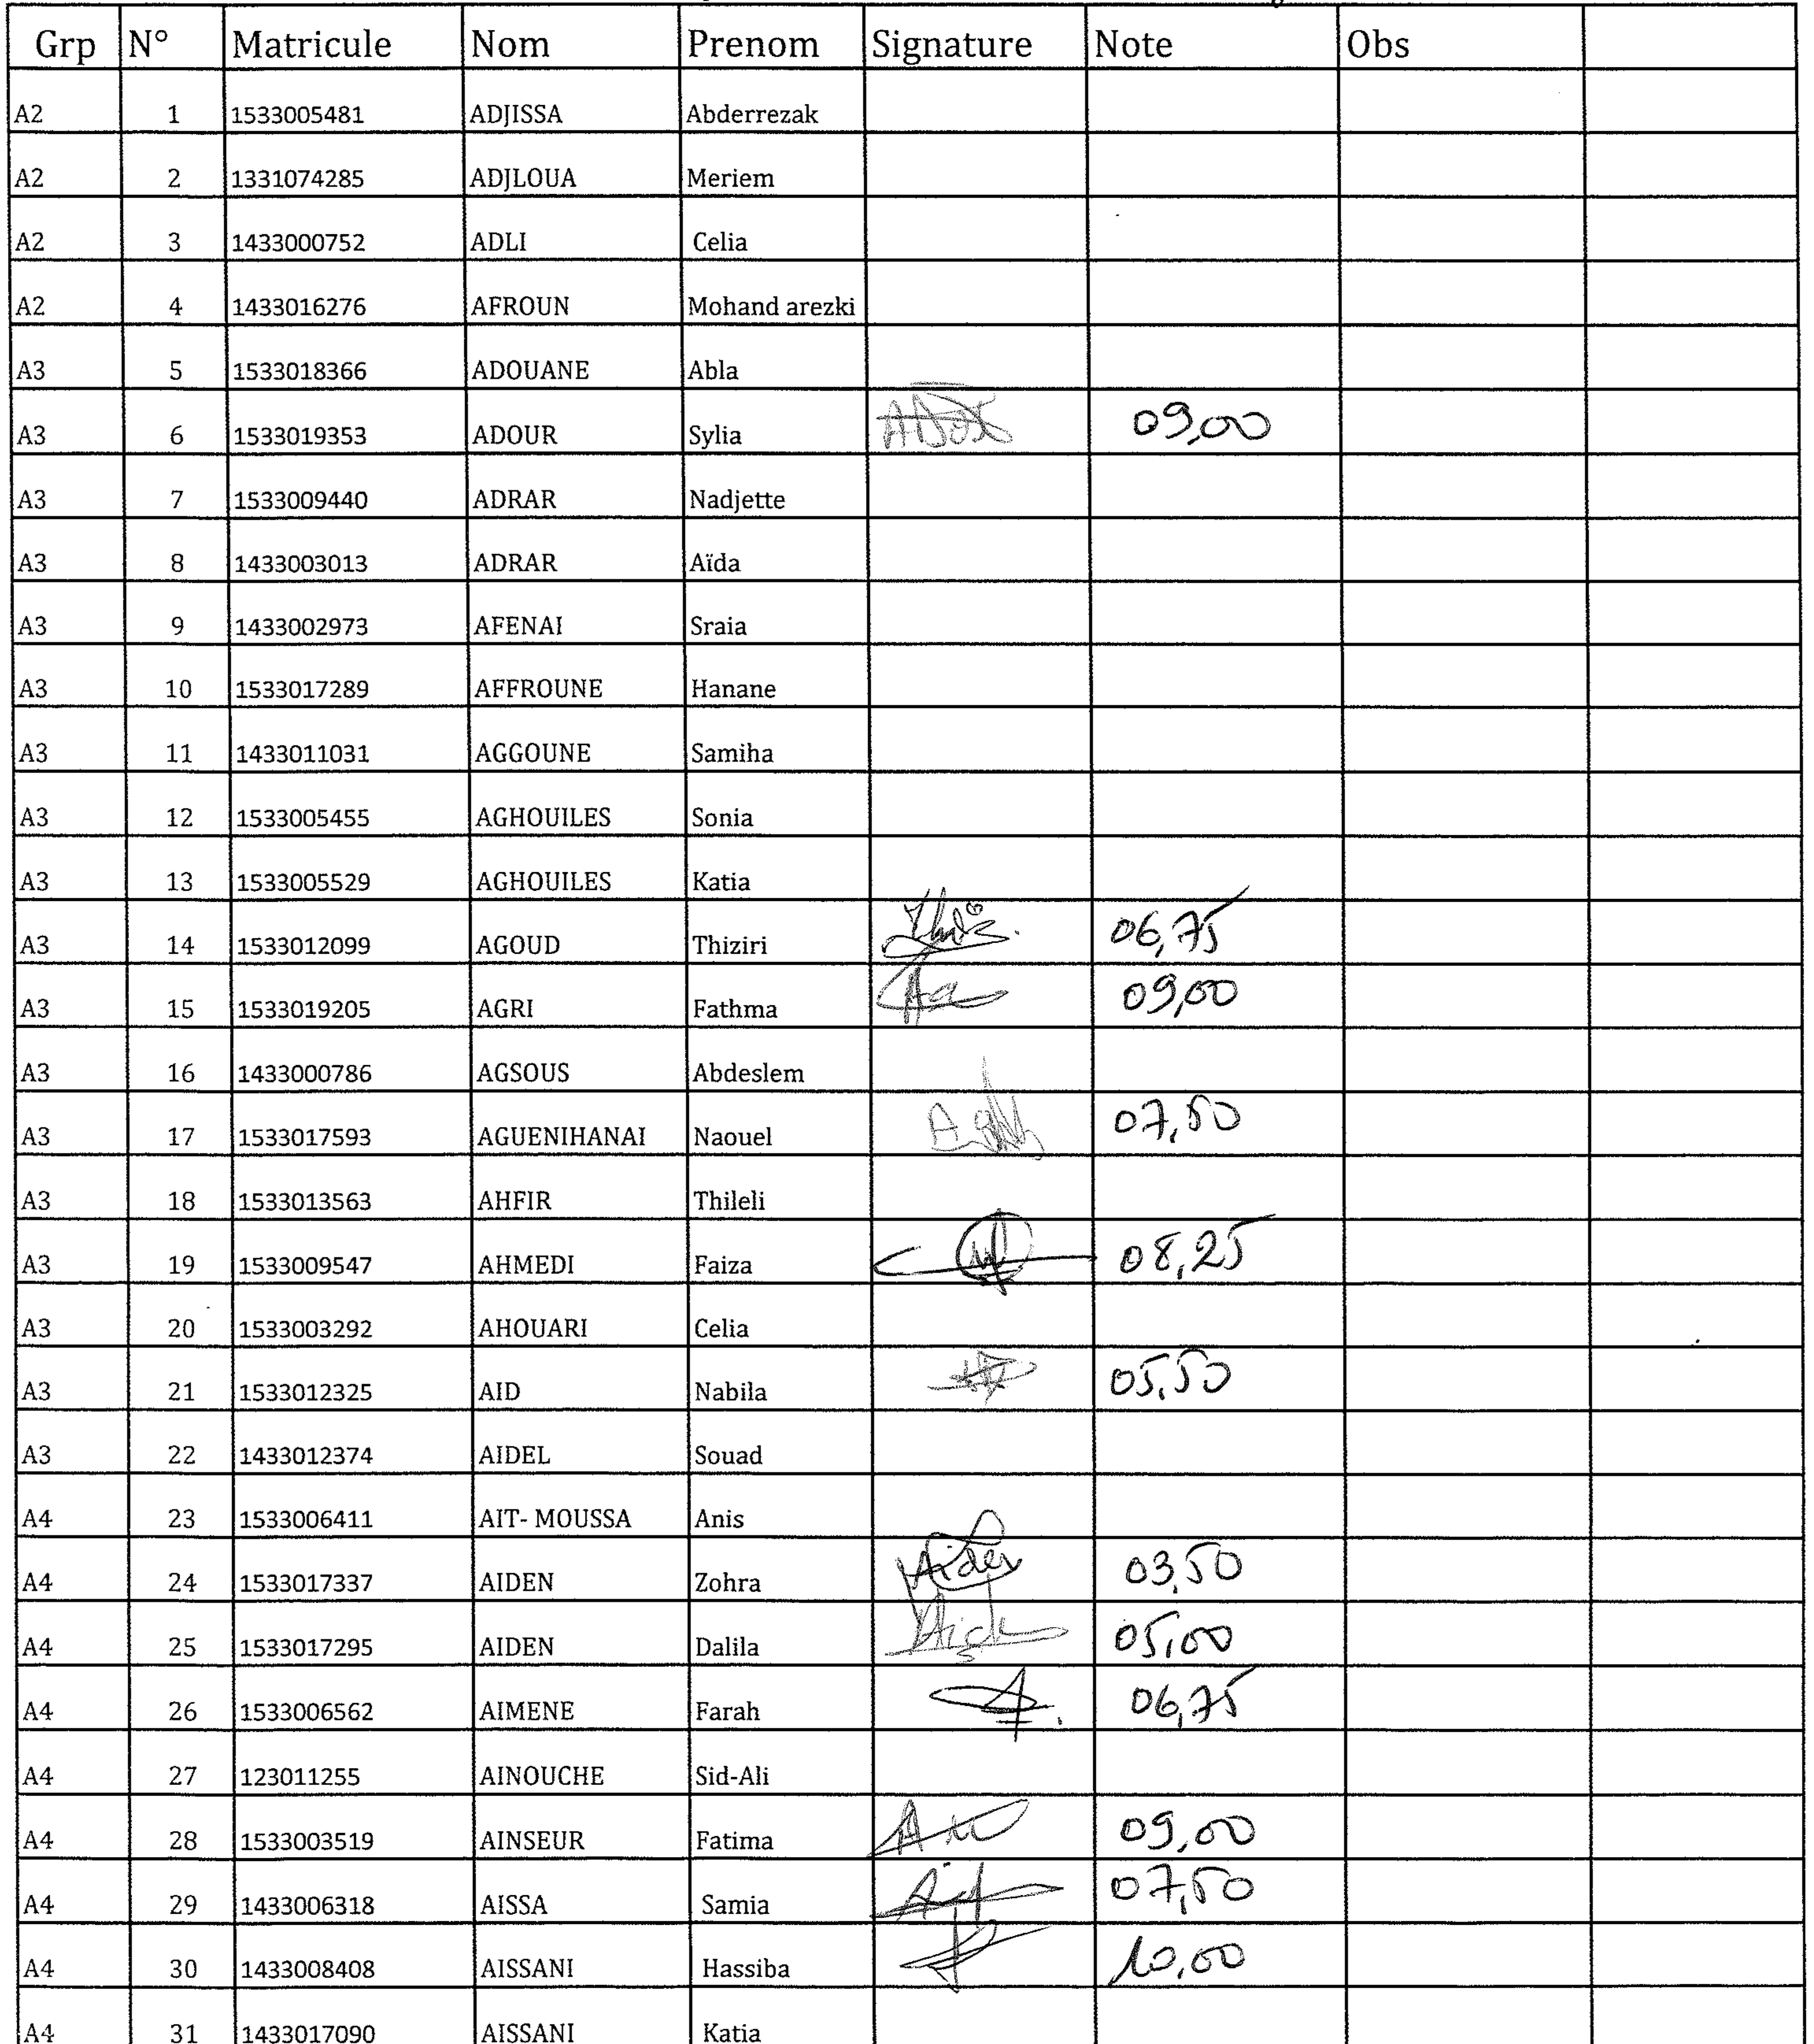 Grp N° Matricule Nom Prenom Signature Note Obs
A2 1 1533005481 ADJISSA Abderrezak
A2 2 1331074285 ADJLOUA Meriem
A2 3 1433000752 ADLI Celia
A2 4 1433016276 AFROUN Mohand arezki
A3 5 1533018366 ADOUANE Abla
A3 6 1533019353 ADOUR Sylia 09,00
A3 7 1533009440 ADRAR Nadjette
A3 8 1433003013 ADRAR Aïda
A3 9 1433002973 AFENAI Sraia
A3 10 1533017289 AFFROUNE Hanane
A3 11 1433011031 AGGOUNE Samiha
A3 12 1533005455 AGHOUILES Sonia
A3 13 1533005529 AGHOUILES Katia
A3 14 1533012099 AGOUD Thiziri 06,75
A3 15 1533019205 AGRI Fathma 09,00
A3 16 1433000786 AGSOUS Abdeslem
A3 17 1533017593 AGUENIHANAI Naouel 07,50
A3 18 1533013563 AHFIR Thileli
A3 19 1533009547 AHMEDI Faiza 08,25
A3 20 1533003292 AHOUARI Celia
A3 21 1533012325 AID Nabila 05,50
A3 22 1433012374 AIDEL Souad
A4 23 1533006411 AIT- MOUSSA Anis
A4 24 1533017337 AIDEN Zohra 03,50
A4 25 1533017295 AIDEN Dalila 05,00
A4 26 1533006562 AIMENE Farah 06,75
A4 27 123011255 AINOUCHE Sid-Ali
A4 28 1533003519 AINSEUR Fatima 09,00
A4 29 1433006318 AISSA Samia 07,50
A4 30 1433008408 AISSANI Hassiba 10,00
A4 31 1433017090 AISSANI Katia